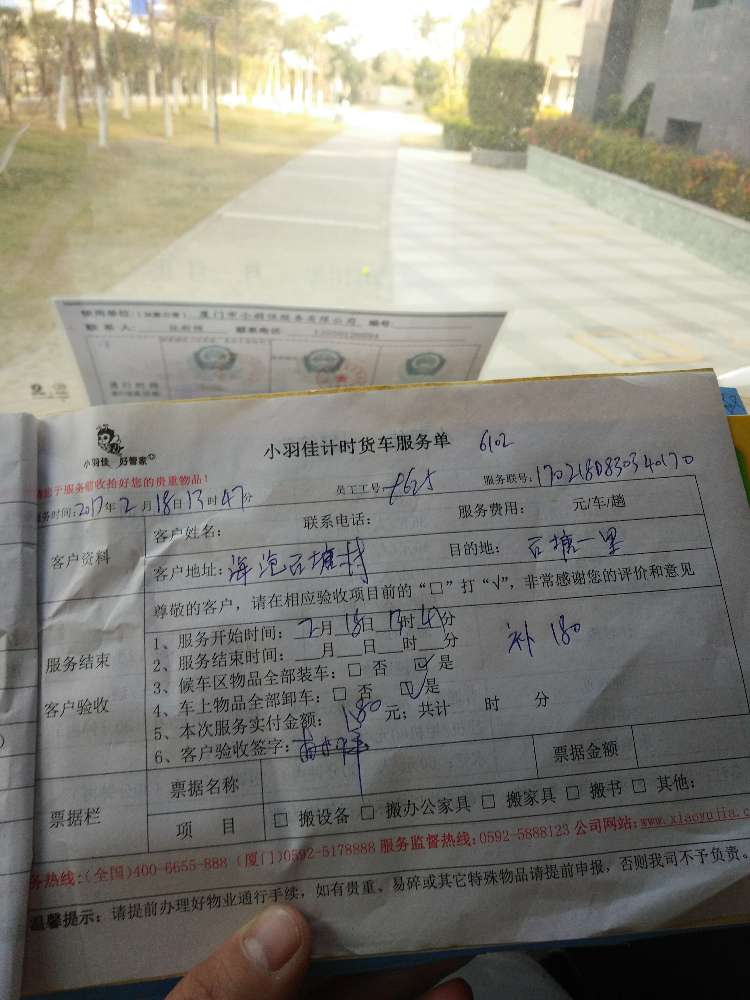 厦门市小羽佳服务有限公司 编号
小羽佳 好管家
小羽佳计时货车服务单 6102
于服务前收拾好您的贵重物品！
员工工号: 8625 服务联号: 1702180830340170
服务时间: 2017年2月18日13时47分
客户资料
客户姓名: 联系电话: 服务费用: 元/车/趟
客户地址: 海沧石塘村 目的地: 石塘一里
尊敬的客户，请在相应验收项目前的“□”打“√”，非常感谢您的评价和意见
服务结束
客户验收
1、服务开始时间: 2月18日13时47分
2、服务结束时间: 月 日 时 分
3、候车区物品全部装车: □ 否 ☑ 是
4、车上物品全部卸车: □ 否 ☑ 是
5、本次服务实付金额: 180元；共计 时 分
6、客户验收签字:
补 180
票据栏
票据名称 票据金额
项 目 □ 搬设备 □ 搬办公家具 □ 搬家具 □ 搬书 □ 其他:
务热线:(全国)400-6655-888 (厦门)0592-5178888 服务监督热线: 0592-5888123 公司网站: www.xiaoyujia.c
温馨提示: 请提前办理好物业通行手续，如有贵重、易碎或其它特殊物品请提前申报，否则我司不予负责。